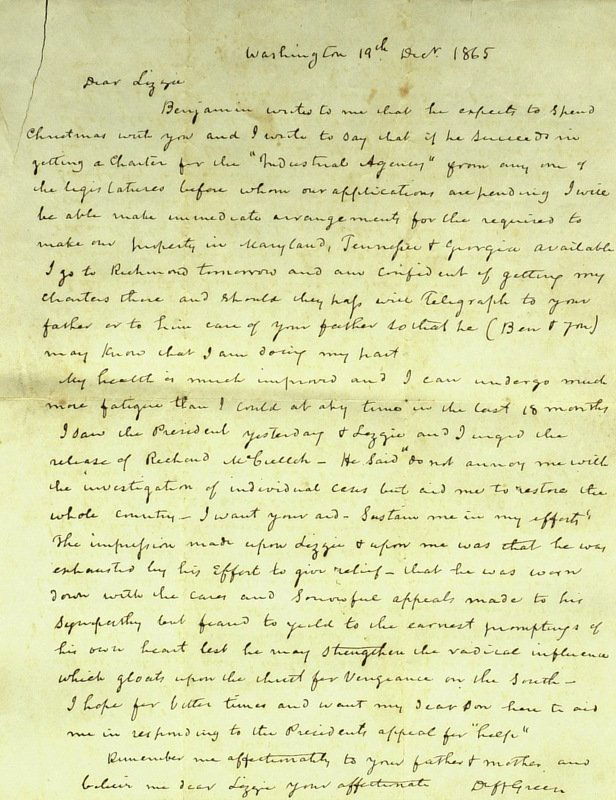 Washington 19th Decr. 1865
Dear Lizzie
Benjamin writes to me that he expects to spend
Christmas with you and I write to say that if he succeeds in
getting a charter for the "Industrial Agency" from any one of
the legislatures before whom our applications are pending I will
be able make immediate arrangements for the required to
make our property in Maryland, Tennessee & Georgia available
I go to Richmond tomorrow and am confident of getting my
charters there and should they pass will Telegraph to your
father or to him care of your father so that he (Ben & you)
may know that I am doing my part
My health is much improved and I can undergo much
more fatigue than I could at any time in the last 18 months
I saw the President yesterday & Lizzie and I urged the
release of Richard McCulloh - He said "do not annoy me with
the investigation of individual cases but aid me to restore the
whole country - I want your aid - Sustain me in my efforts"
The impression made upon Lizzie & upon me was that he was
exhausted by his effort to give relief - that he was worn
down with the cares and sorrowful appeals made to his
sympathy but feared to yield to the earnest promptings of
his own heart lest he may strengthen the radical influence
which gloats upon the thirst for Vengeance on the South -
I hope for better times and want my dear Son here to aid
me in responding to the Presidents appeal for "help"
Remember me affectionately to your father & mother and
believe me dear Lizzie your affectionate Duff Green